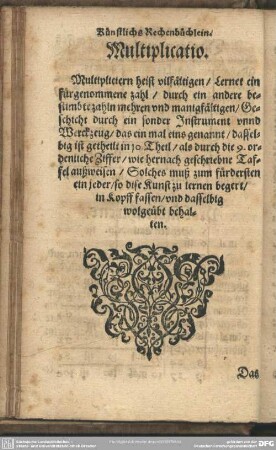 Künstlichs Rechenbüchlein/
Multiplicatio.
Multiplicirern heist vilfältigen / Lernet ein
fürgenommene zahl / durch ein andere be-
stimbte zahln mehren vnd manigfältigen / Ge-
schicht durch ein sonder Instrument vnnd
Werckzeug / das ein mal eins genannt / dassel-
big ist getheilt in 30. Theil / als durch die 9. or-
denliche Ziffer / wie hernach geschriebne Taf-
fel außweisen / Solches muß zum fürdersten
ein jeder / so dise Kunst zu lernen begert /
in Kopff fassen / vnd dasselbig
wolgeübt behal-
ten.
Das